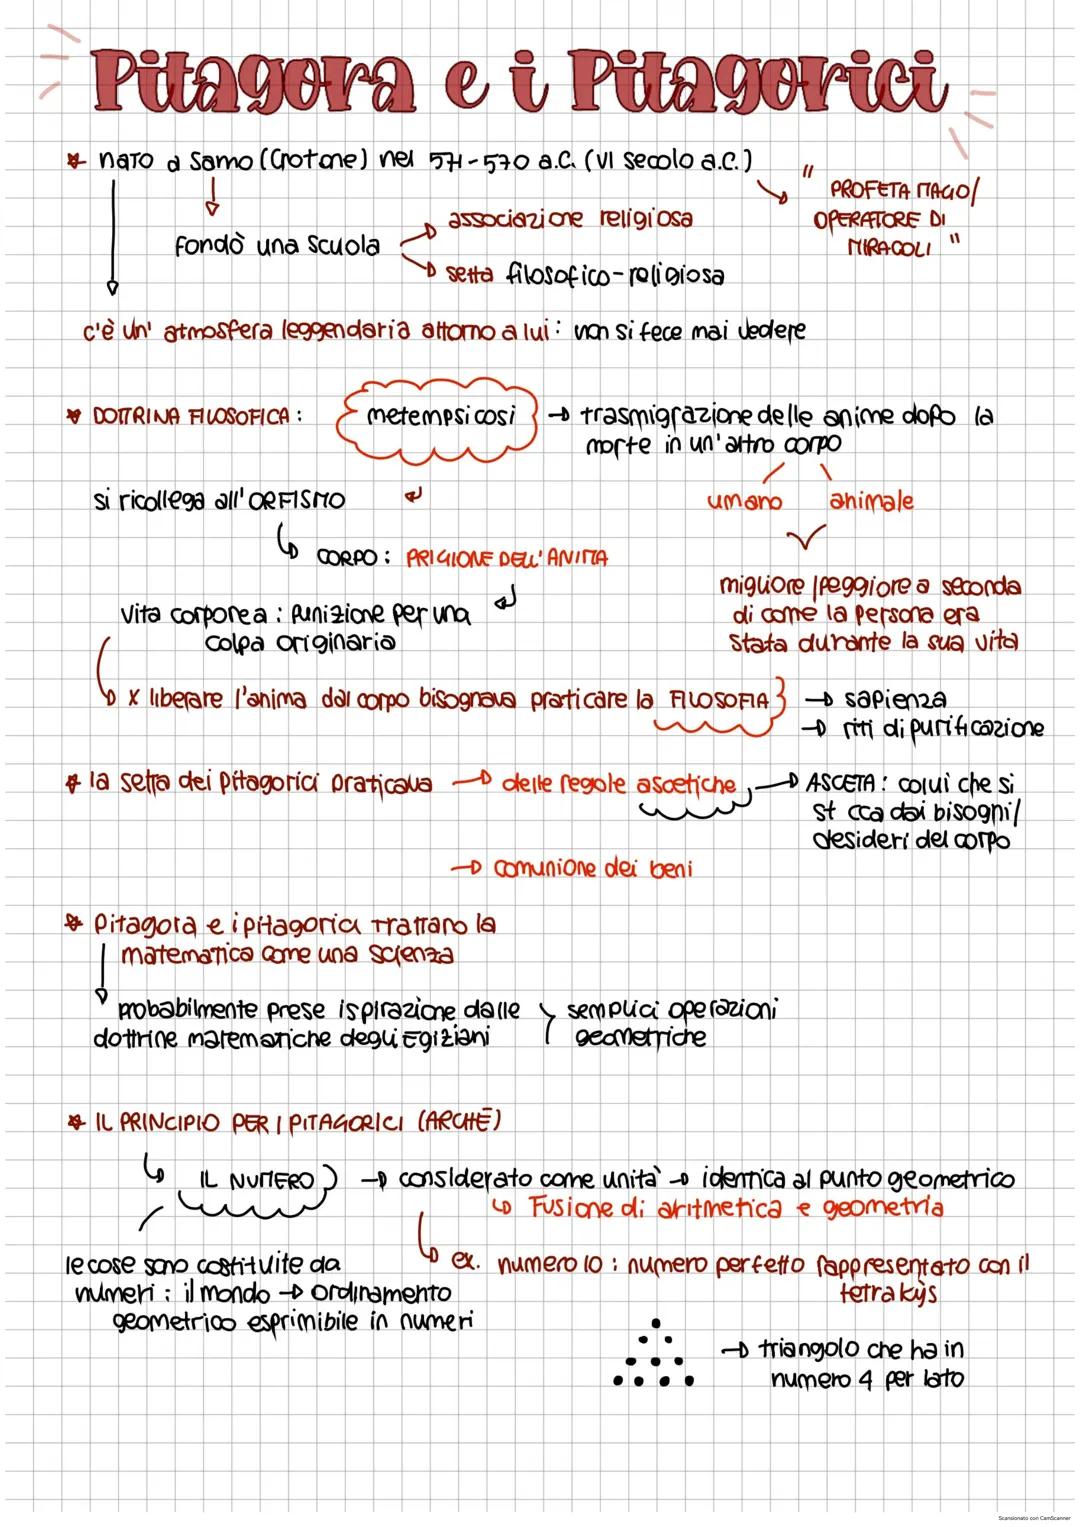 Pitagora e i Pitagorici
nato a Samo (Crotone) nel 571-570 a.C. (VI secolo a.C.)
" PROFETA MAGO/
OPERATORE DI
MIRACOLI "
associazione religiosa
fondò una scuola
setta filosofico-religiosa
c'è un' atmosfera leggendaria attorno a lui: non si fece mai vedere
DOTTRINA FILOSOFICA: metempsicosi → trasmigrazione delle anime dopo la
morte in un'altro corpo
si ricollega all'ORFISMO
umano animale
CORPO: PRIGIONE DELL'ANIMA
migliore/peggiore a seconda
di come la persona era
stata durante la sua vita
vita corporea: punizione per una
colpa originaria
x liberare l'anima dal corpo bisognava praticare la FILOSOFIA } → sapienza
→ riti di purificazione
la setta dei pitagorici praticava → delle regole ascetiche, → ASCETA: colui che si
st cca dai bisogni/
desideri del corpo
→ comunione dei beni
Pitagora e i pitagorici trattano la
matematica come una scienza
probabilmente prese ispirazione dalle semplici operazioni
dottrine matematiche degli Egiziani geometriche
IL PRINCIPIO PER I PITAGORICI (ARCHÈ)
IL NUMERO → considerato come unità → identica al punto geometrico
Fusione di aritmetica e geometria
ex. numero 10: numero perfetto rappresentato con il
tetraktys
le cose sono costituite da
numeri: il mondo → ordinamento
geometrico esprimibile in numeri
→ triangolo che ha in
numero 4 per lato
Scansionato con CamScanner